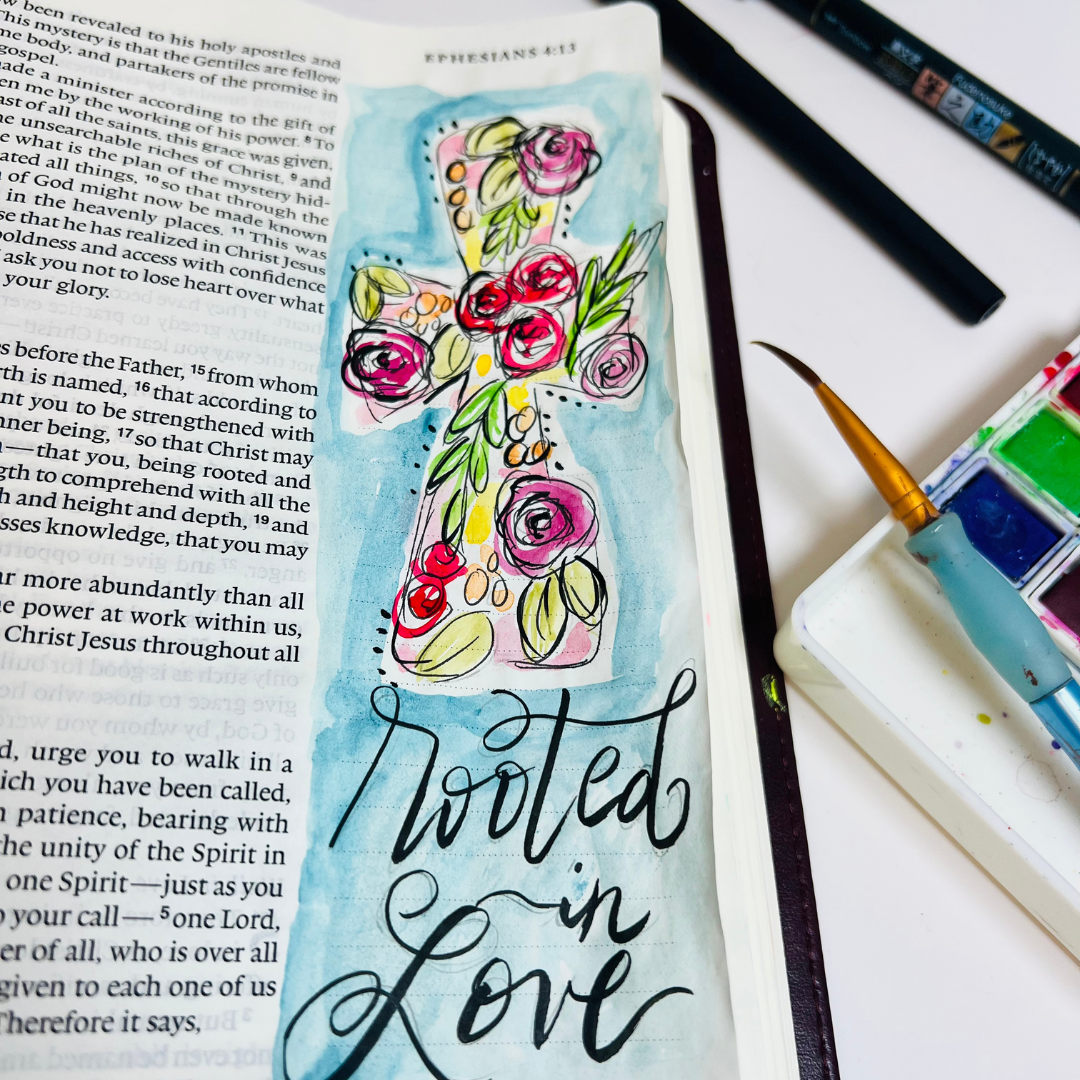 w been revealed to his holy apostles and
This mystery is that the Gentiles are fellow
me body, and partakers of the promise in
gospel.
ade a minister according to the gift of
en me by the working of his power. 8 To
ast of all the saints, this grace was given,
he unsearchable riches of Christ, 9 and
e what is the plan of the mystery hid-
ated all things, 10 so that through the
m of God might now be made known
in the heavenly places. 11 This was
se that he has realized in Christ Jesus
boldness and access with confidence
ask you not to lose heart over what
your glory.
es before the Father, 15 from whom
rth is named, 16 that according to
nt you to be strengthened with
nner being, 17 so that Christ may
—that you, being rooted and
gth to comprehend with all the
h and height and depth, 19 and
sses knowledge, that you may
ar more abundantly than all
e power at work within us,
Christ Jesus throughout all
d, urge you to walk in a
ich you have been called,
patience, bearing with
the unity of the Spirit in
one Spirit—just as you
o your call—5 one Lord,
er of all, who is over all
given to each one of us
Therefore it says,
EPHESIANS 4:13
rooted
in
Love